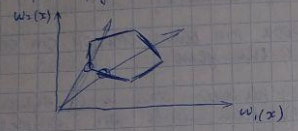 w₂(x)
w₁(x)